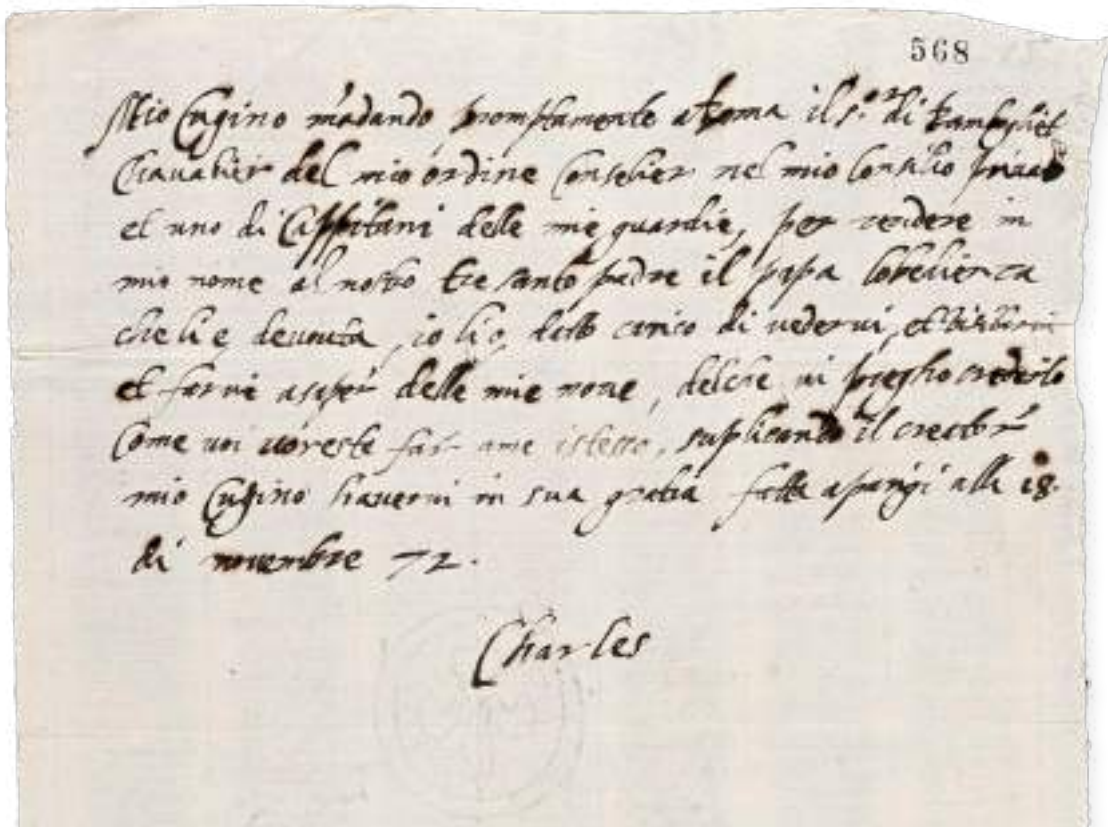 568
Mio Cugino mãdando promptamente a Roma il s.or di Rambogliet
Chavalier del mio ordine Conselier nel mio Consilio privato
et uno di Cappitani delle mie guardie, per rendere in
mio nome al nostro tre santo padre il papa lobedienza
che li e devouta, io lio dato carico di vedervi, et
et farvi asaper delle mie nove, delche vi pregho crederlo
Come voi voreste far ame istesso, suplicando il creator
mio Cugino havervi in sua gratia fatta aparigi alli 18.
di novembre 72.
Charles